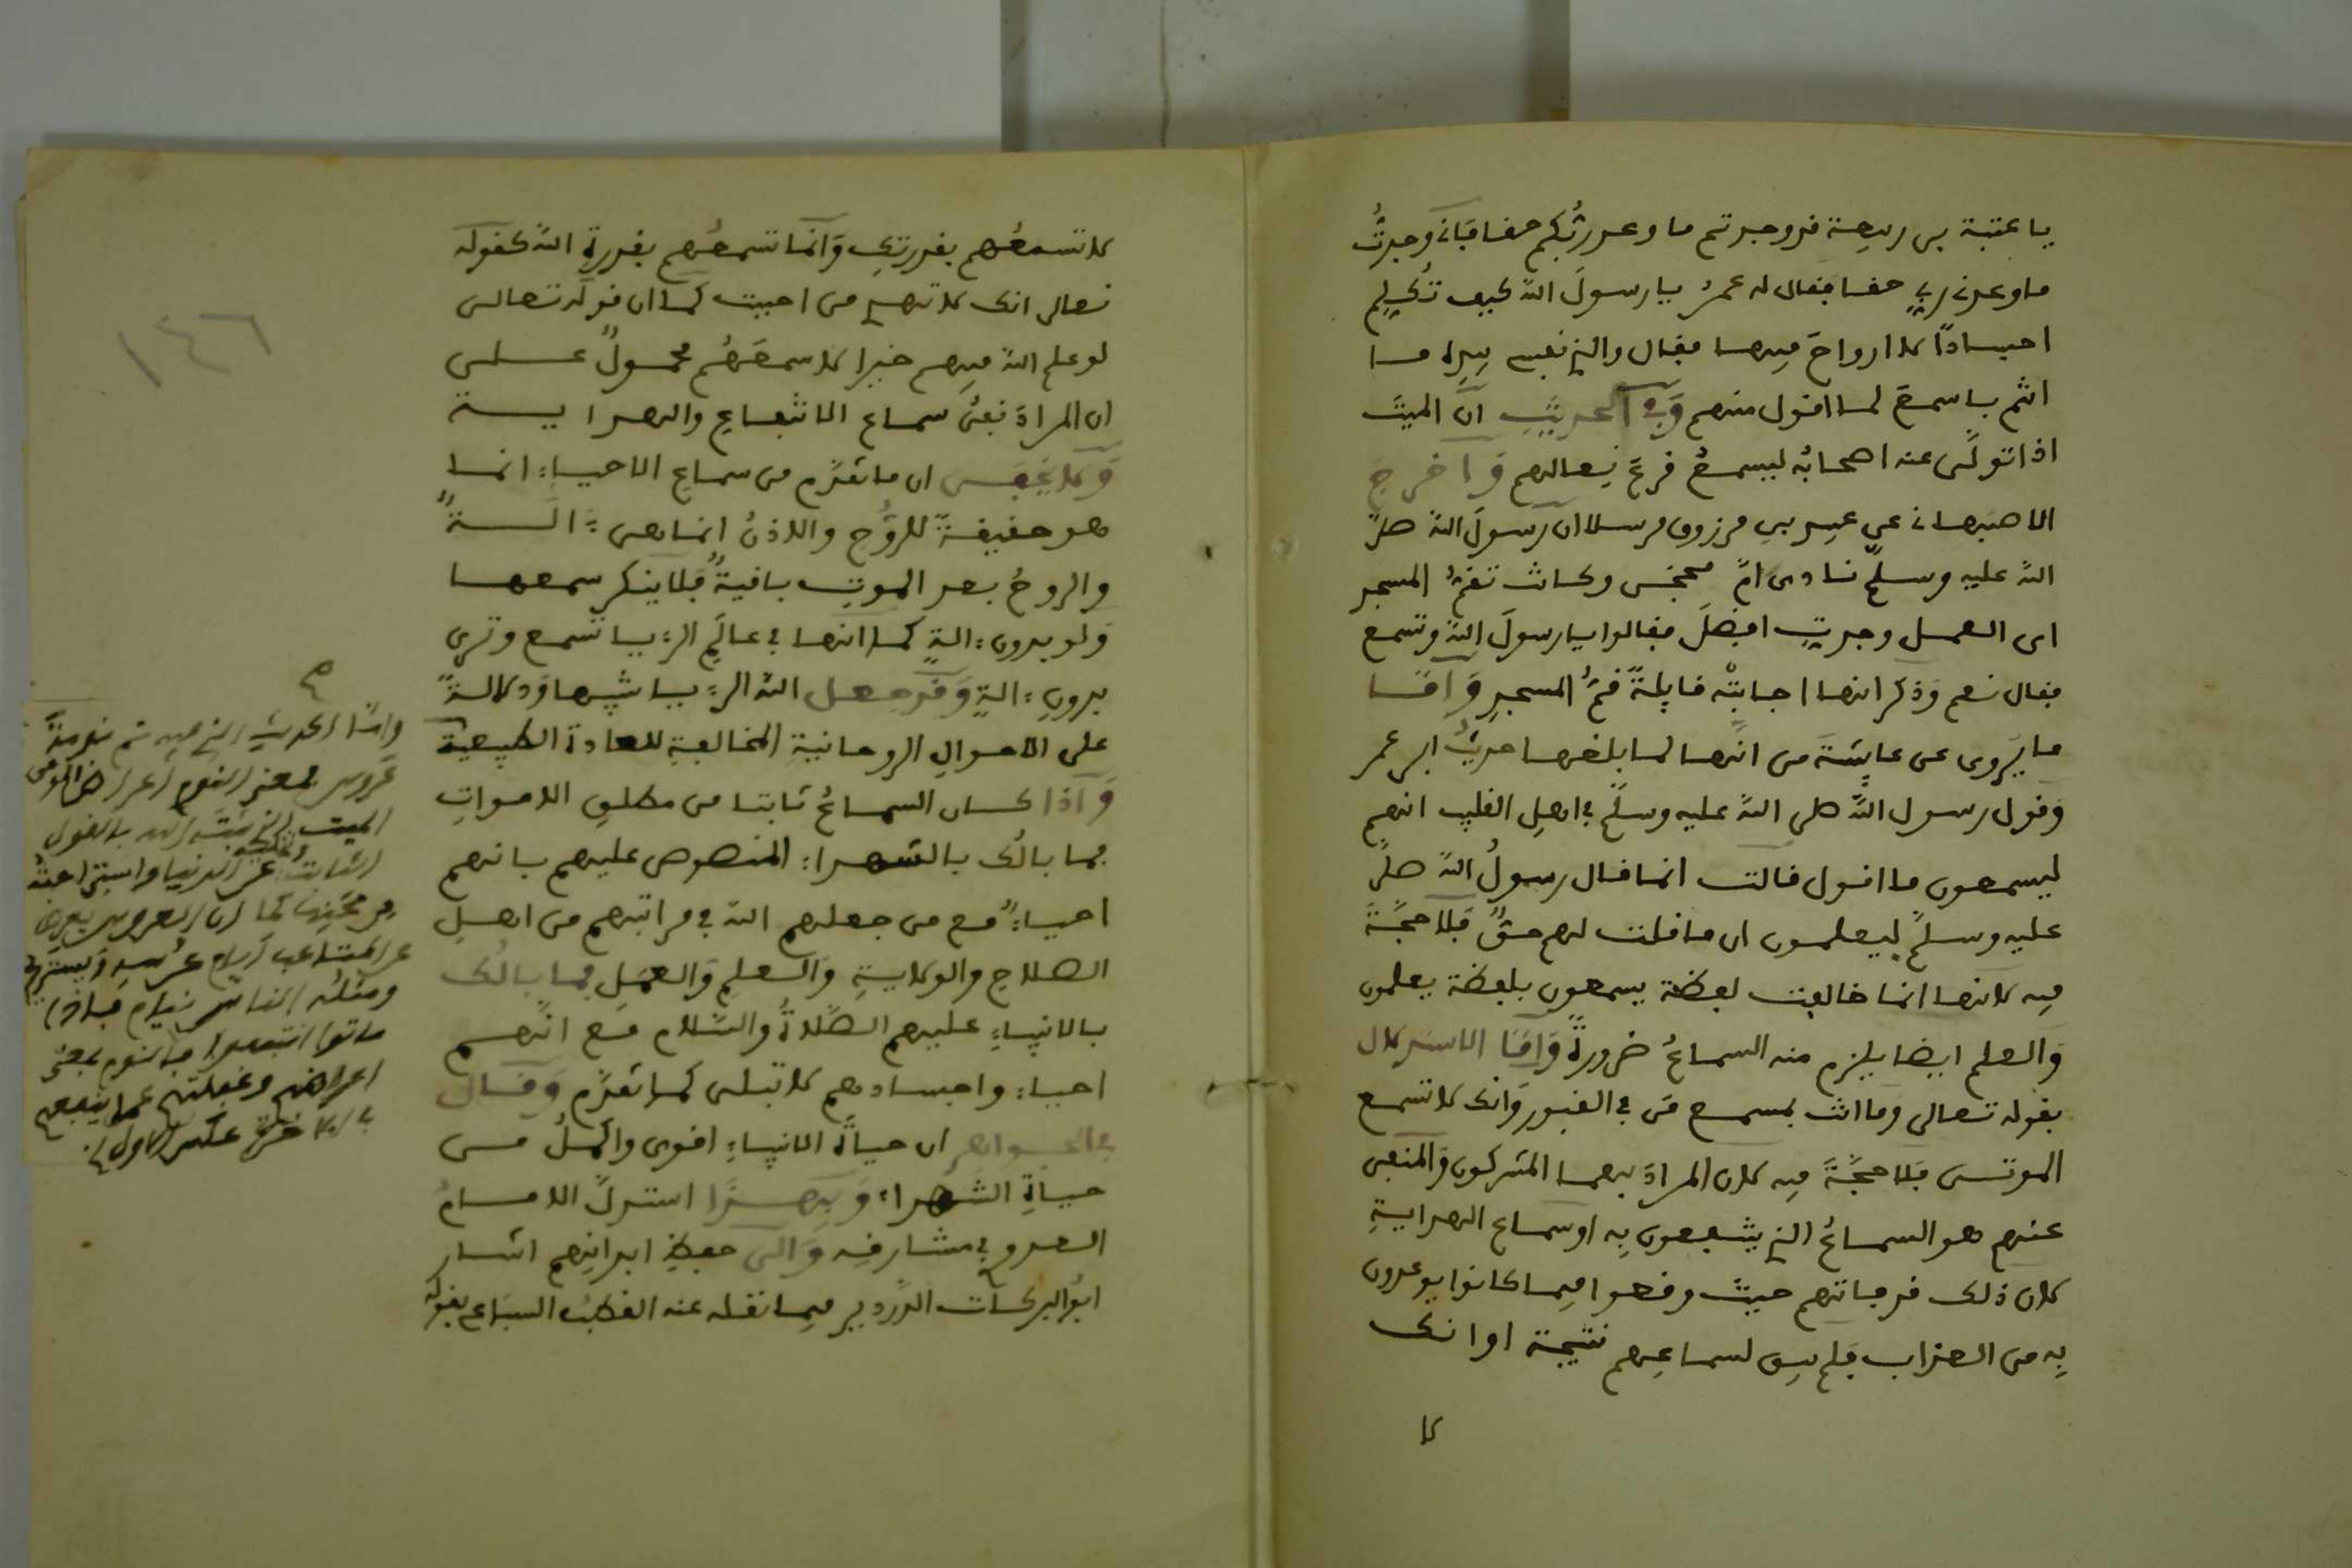 يا عتبة بن ربيعة قد وجدتم ما وعد ربُّكم حقا فإنى وجدتُ
ما وعدنى ربى حقا فقال له عمرُ يا رسولَ اللهِ كيف تُكلِّم
اجسادًا لا ارواحَ فيها فقال والذى نفسى بيده ما
انتم باسمعَ لما اقول منهم وَفى الحديثِ انّ الميتَ
اذا تولّى عنه اصحابُه ليسمعُ قرعَ نعالهم وَاخرجَ
الاصبهانى عن عبيد بن مرزوق مرسلا ان رسولَ اللهِ صلى
اللهُ عليه وسلّم نادى امَّ محجن وكانت تقمُّ المسجد
اى العمل وجدتِ افضلَ فقالوا يا رسولَ الله وتسمع
فقال نعم وَذكر انها اجابتْه قايلةً قمُّ المسجدِ وَامّا
ما يُروى عن عايشةَ من انّها لما بلغها حديثُ ابن عمر
وَقول رسول اللهِ صلى اللهُ عليه وسلّم فى اهلِ القليب انهم
ليسمعون ما اقول قالت انما قال رسولُ اللهِ صلى
عليه وسلم ليعلمون ان ما قلت لهم حقٌّ فَلا حجّةَ
فيه لانها انما خالفت لفظة يسمعون بلفظة يعلمون
وَالعلم ايضا يلزم منه السماعُ ضرورةً وَامّا الاستدلال
بقوله تعالى وما انت بمسمع مَن فى القبور وَانك لا تسمع
الموتى فَلا حجّةَ فيه لان المرادَ بهما المشركون وَالمنفى
عنهم هو السماعُ الذى ينتفعون بِه او سماع الهدايةِ
لان ذلك قد فاتهم حيث وقعوا فيما كانوا يوعدون
بِه من العذاب فَلم يبق لسماعِهم نتيجة او انك
لا
لا تسمعُهم بقدرتِك وَانّما تسمعُهم بقدرةِ اللهِ كقوله
تعالى انك لا تهدى من احببت كما ان قوله تعالى
لو علم اللهُ فيهم خيرا لاسمعَهُم محمولٌ على
ان المرادَ نفىُ سماع الانتفاعِ والهداية
وَلا يخفى ان ما تقدَّم من سماعِ الاحياءِ انما
هو حقيقةً للرُّوحِ والاذنُ انما هى ءالةٌ
والروحُ بعد الموتِ باقيةٌ فَلا ينكر سمعها
وَلو بدون ءالةٍ كما انها فى عالَمِ الرءيا تسمع وترى
بدونِ ءالةٍ وَقد جعل اللهُ الرءيا شبيها وَدلالةً
على الاحوالِ الروحانيةِ المخالفةِ للعادة الطبيعية
وَاذا كان السماعُ ثابتا من مطلقِ الامواتِ
فما بالُك بالشهداءِ المنصوص عليهم بانهم
احياءٌ مع من جعلهم اللهُ فى مراتبهم من اهلِ
الصلاحِ والولايةِ وَالعلمِ وَالعمَلِ فما بالُك
بالانبياءِ عليهم الصَّلاةُ والسَّلام مع انّهم
احياءٌ واجسادهم لا تبلى كما تقدّم وَقال
فى الجواهر ان حياةَ الانبياءِ اقوى واكملُ من
حياةِ الشهداءِ وَبِهذا استدلّ الامامُ
العدوى فى مشارقِه وَالى حفظِ ابدانِهم اشار
ابوُ البركات الدَّردير فيما نقله عنه القطبُ السباعى بقوله
صح
وامّا الحديث الذى فيه نم نومةَ
عَروس فمعنى النوم
الميت الذى ثبته الله بالقول
الثابت عن الدنيا واستراحتُه
من محنِها كما ان العروس
عن المتاعب ايام عرسِه ويستريح
ومثلُه الناس نيام فاذا
ماتوا انتبهوا فالنوم بمعنى
اعراضهم وغفلتهم عما ينفعهم
فى الاخرة عكس الاول
١٤٦